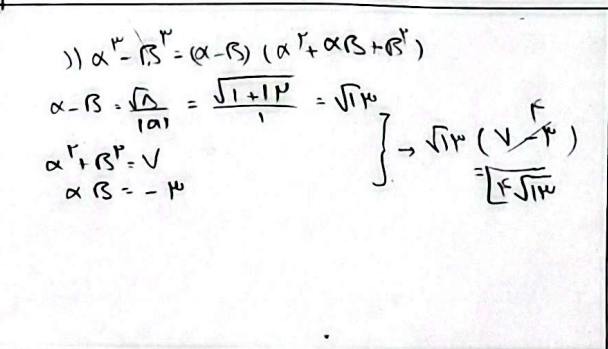 )) α^۳ - β^۳ = (α-β) (α^۲ + αβ + β^۲)
α-β = √Δ / |a| = √(۱+۱۲) / ۱ = √۱۳
α^۲ + β^۲ = ۷
αβ = -۳
} → √۱۳ (۷-۳) ۴
= ۴√۱۳